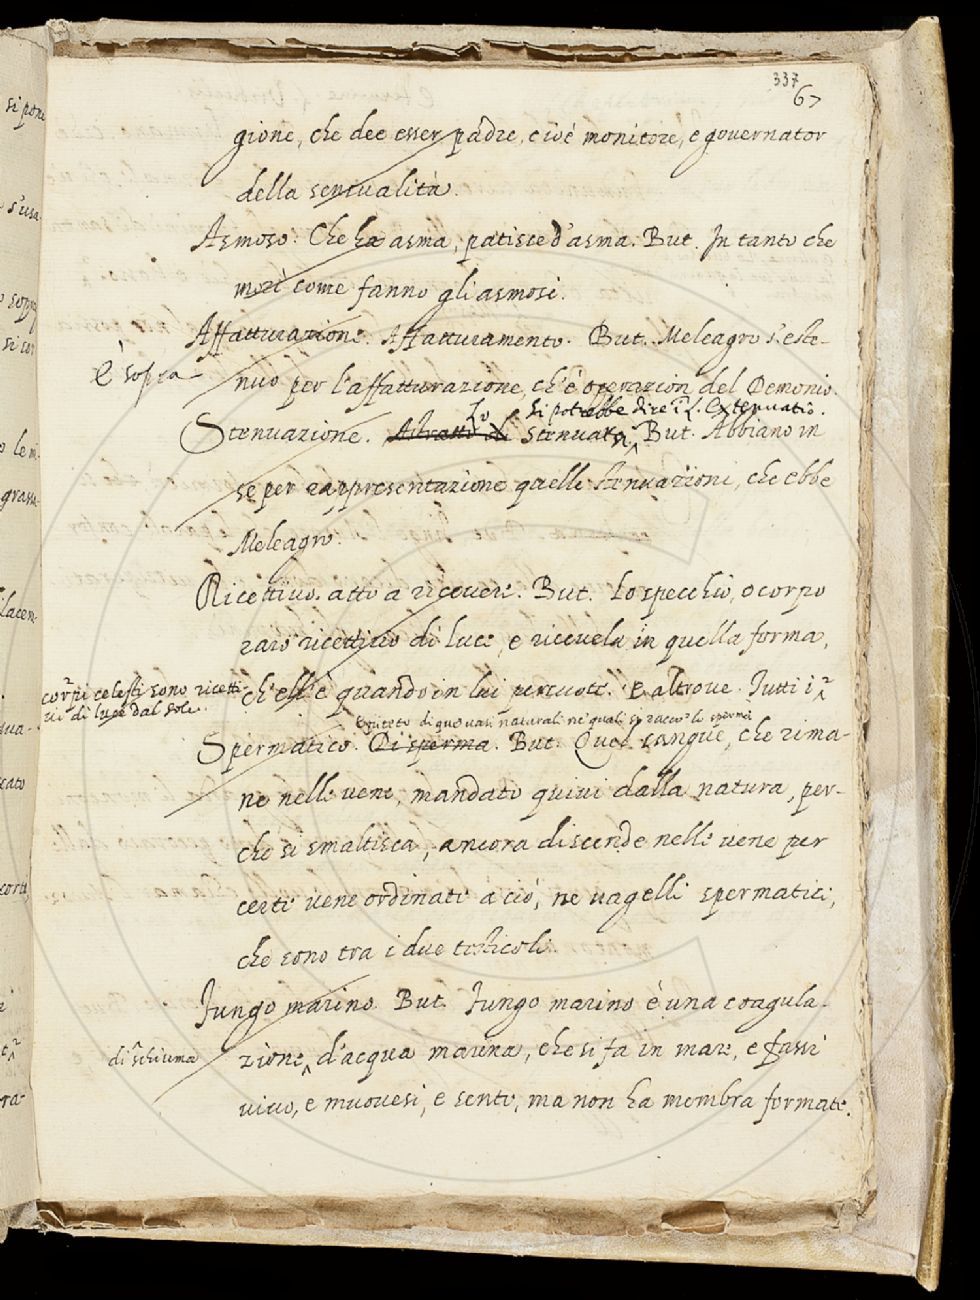 337
67
gione, che dee esser padre, cioè monitore, e governator
della sensualità.
Asmoso. Che ha asma, patisce d'asma. But. In tanto che
morì come fanno gli asmosi.
Affatturazione. Affatturamento. But. Meleagro s'este-
È sopra
nuo per l'affatturazione, ch'è operazion del Demonio.
si potrebbe dire Lo extenuatio.
Stenuazione. Astratto di stenuare. But. Abbiano in
se per rappresentazione quelle stenuazioni, che ebbe
Meleagro.
Ricettivo. atto a ricevere. But. Lo specchio, o corpo
raro ricettivo di luce, e ricevela in quella forma,
corpi celesti sono ricetti-
vi di luce dal sole.
ch'ell'è quando in lui percuote. E altrove. Tutti i
Epiteto di que vasi naturali ne' quali si raccoe lo sperma
Spermatico. Di sperma. But. Quel sangue, che rima-
ne nelle vene, mandato quivi dalla natura, per-
che si smaltisca, ancora discende nelle vene per
certe vene ordinate a ciò, ne vagelli spermatici,
che sono tra i due testicoli.
Fungo marino. But. Fungo marino è una coagula-
di schiuma
zione d'acqua marina, che si fa in mare, e fassi
vivo, e muovesi, e sente, ma non ha membra formate.
si pone
s'usa